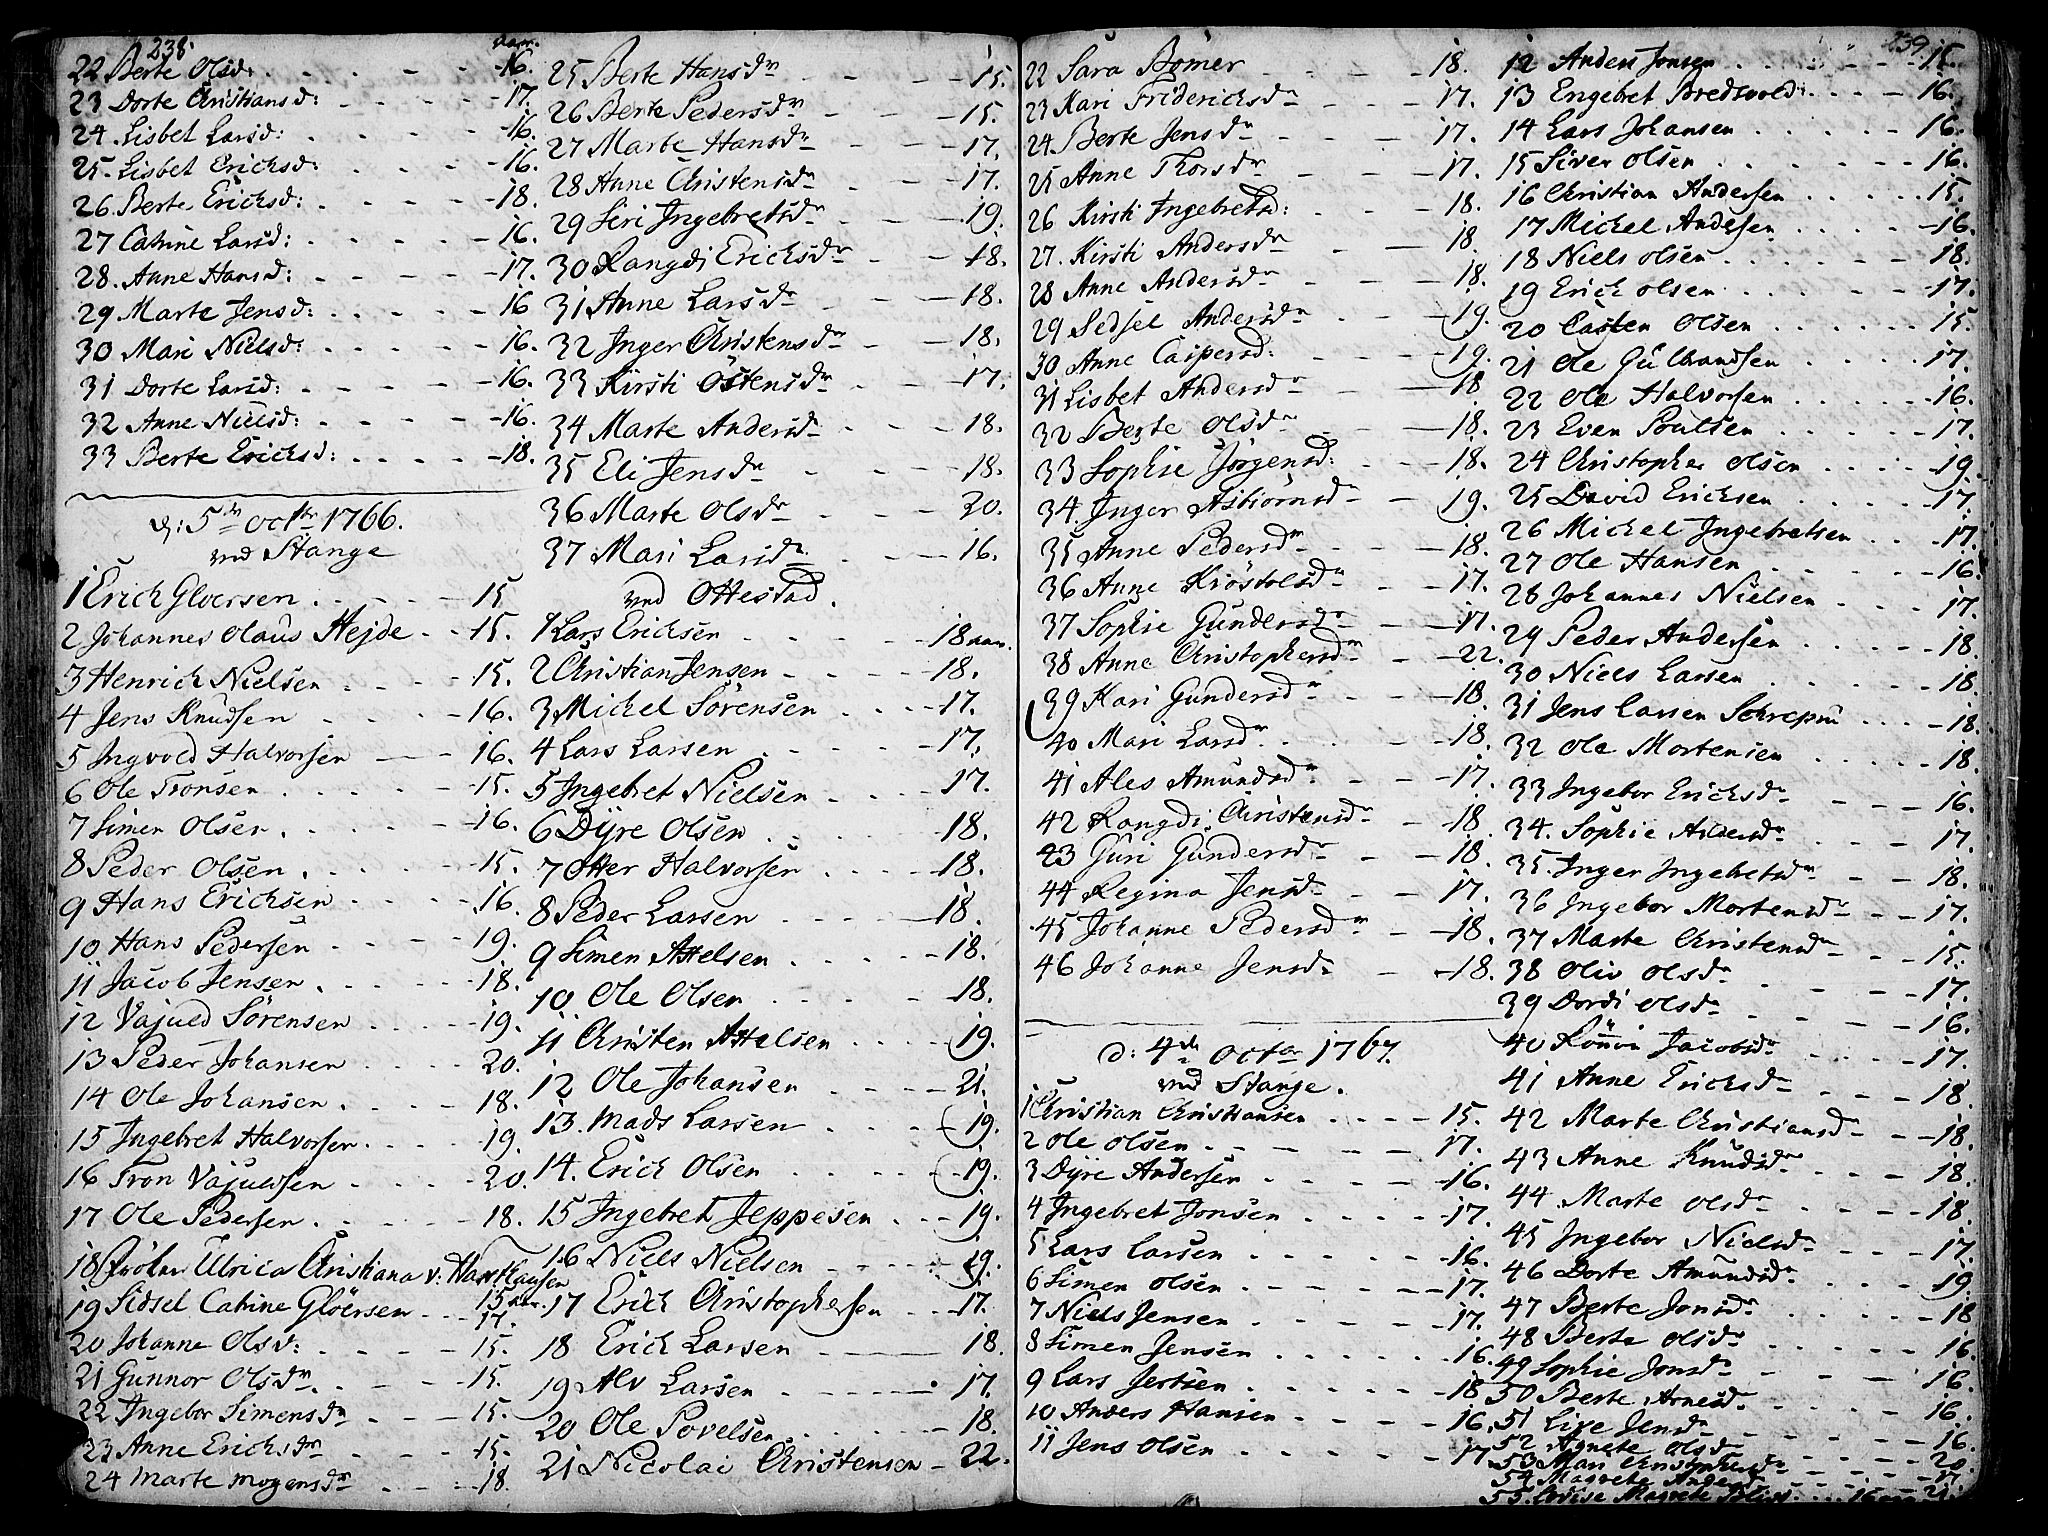 238.
aar.
22 Berte Olsd: 16.
23 Dorte Christiansd: 17.
24. Lisbet Larsd: 16.
25. Lisbet Ericksd: 16.
26. Berte Ericksd: 18.
27 Catrine Larsd: 16.
28. Anne Hansd: 17.
29 Marte Jensd: 16
30 Mari Nielsd: 16.
31 Dorte Larsd: 16.
32 Anne Nielsd: 16.
33 Berte Ericksd: 18.
d: 5te octbr 1766.
ved Stange
1 Erich Gloersen 15
2 Johannes Olaus Hejde 15.
3 Henrich Nielsen 15.
4 Jens Knudsen 16.
5 Ingvold Halvorsen 16.
6 Ole Tronsen 15.
7 Simen Olsen 16.
8 Peder Olsen 15.
9 Hans Ericksen 16.
10 Hans Pedersen 19.
11 Jacob Jensen 18.
12 Vajued Sörensen 19.
13 Peder Johansen 20.
14 Ole Johansen 18.
15 Ingebret Halvorsen 19.
16 Tron Vajuedsen 20.
17 Ole Pedersen 18.
18 Ulrica Christiana v: Haxthausen 15 aar.
19 Sidsel Catrine Gloërsen 17.
20 Johanne Olsd: 15.
21 Gunnor Olsdr 15.
22 Ingebor Simensdr 15.
23 Anne Ericksdr 15.
24 Marte Mogensdr 18.
25 Berte Hansdr 15.
26 Berte Pedersdr 15.
27 Marte Hansdr 17.
28 Anne Christensdr 17.
29 Siri Ingebretsdr 19.
30 Rangdj Ericksdr 18.
31 Anne Larsdr 18.
32 Inger Christensdr 18.
33 Kirsti Östensdr 17.
34 Marte Andersdr 18.
35 Eli Jensdr 18.
36 Marte Olsdr 20.
37 Mari Larsdr 16.
ved Ottestad.
1 Lars Ericksen 18 aar.
2 Christian Jensen 18.
3 Michel Sörensen 17.
4 Lars Larsen 17.
5 Ingebret Nielsen 17.
6 Dyre Olsen 18.
7 Otter Halvorsen 18.
8 Peder Larsen 18.
9 Simen Attelsen 18.
10 Ole Olsen 18.
11 Christen Attelsen 19.
12 Ole Johansen 21.
13. Mads Larsen 19.
14. Erich Olsen 19.
15 Ingebret Jeppesen 19.
16 Niels Nielsen 19.
17 Erich Christophersen 17.
18 Erich Larsen 18.
19 Alv Larsen 17.
20 Ole Povelsen 18.
21 Nicolai Christensen 22.
239
22 Sara Bömer 18.
23 Kari Fridericksdr 17.
24 Berte Jensdr 17.
25 Anne Thorsdr 17.
26 Kirsti Ingebretsd: 18.
27. Kirsti Andersdr 18
28 Anne Andersdr 18.
29 Sedsel Andersdr 19.
30 Anne Caspersd: 19.
31 Lisbet Andersdr 18
32 Berte Olsdr 18.
33 Sophie Jörgensd: 18.
34. Inger Asbiörnsdr 19.
35 Anne Pedersdr 18.
36 Anne Kröstolsdr 17.
37 Sophie Gundersdr 17.
38 Anne Christophersdr 22.
39 Kari Gundersdr 18.
40 Mari Larsdr 18.
41 Ales Amundsdr 17.
42 Rangdi Christensdr 18.
43 Guri Gundersdr 18.
44 Regina Jensdr 17.
45 Johanne Pedersdr 18.
46 Johanne Jensdr 18.
d: 4de octbr 1767.
ved Stange.
1 Christian Christiansen 15.
2 Ole Olsen 17.
3 Dyre Andersen 16.
4 Ingebret Jonsen 17.
5 Lars Larsen 16.
6 Simen Olsen 17.
7 Niels Jensen 17.
8 Simen Jensen 16.
9 Lars Jertsen 18
10 Anders Hansen 16.
11 Jens Olsen 17
12 Anders Jonsen 15.
13 Engebret Bredsvold: 16.
14 Lars Johansen 16.
15 Siver Olsen 16.
16 Christian Andersen 15.
17 Michel Andersen 16.
18 Niels Olsen 18.
19 Erich Olsen 17.
20 Casten Olsen 15.
21 Ole Gulbrandsen 17.
22 Ole Halvorsen 16.
23 Even Poulsen 17.
24 Christopher Olsen 19.
25 David Ericksen 17.
26 Michel Ingebretsen 17.
27 Ole Hansen 16.
28 Johannes Nielsen 17.
29 Peder Andersen 18.
30 Niels Larsen 18.
31 Jens Larsen 18.
32 Ole Mortensen 18.
33 Ingebor Ericksdr 16.
34. Sophie Andersdr 17.
35. Inger Ingebretsdr 18.
36 Ingebor Mortensdr 17.
37 Marte Christensdr 15.
38 Oliv Olsdr 17.
39 Dordi Olsdr 16.
40 Jacobsdr 17.
41 Anne Ericksdr 18.
42 Marte Christiansdr 18.
43 Anne Knudsdr 18.
44 Marte Olsdr 18.
45 Ingebor Nielsdr 17.
46 Dorte Amundsdr 19.
47 Berte Jonsdr 18
48 Berte Olsdr 16.
49 Sophie Jonsdr 16.
50 Berte Arnesdr 16.
51 Live Jensdr 16.
52 Agnete Olsdr 20.
53 Mari Christophersdr
54 Magrete
55. Magrete 21.